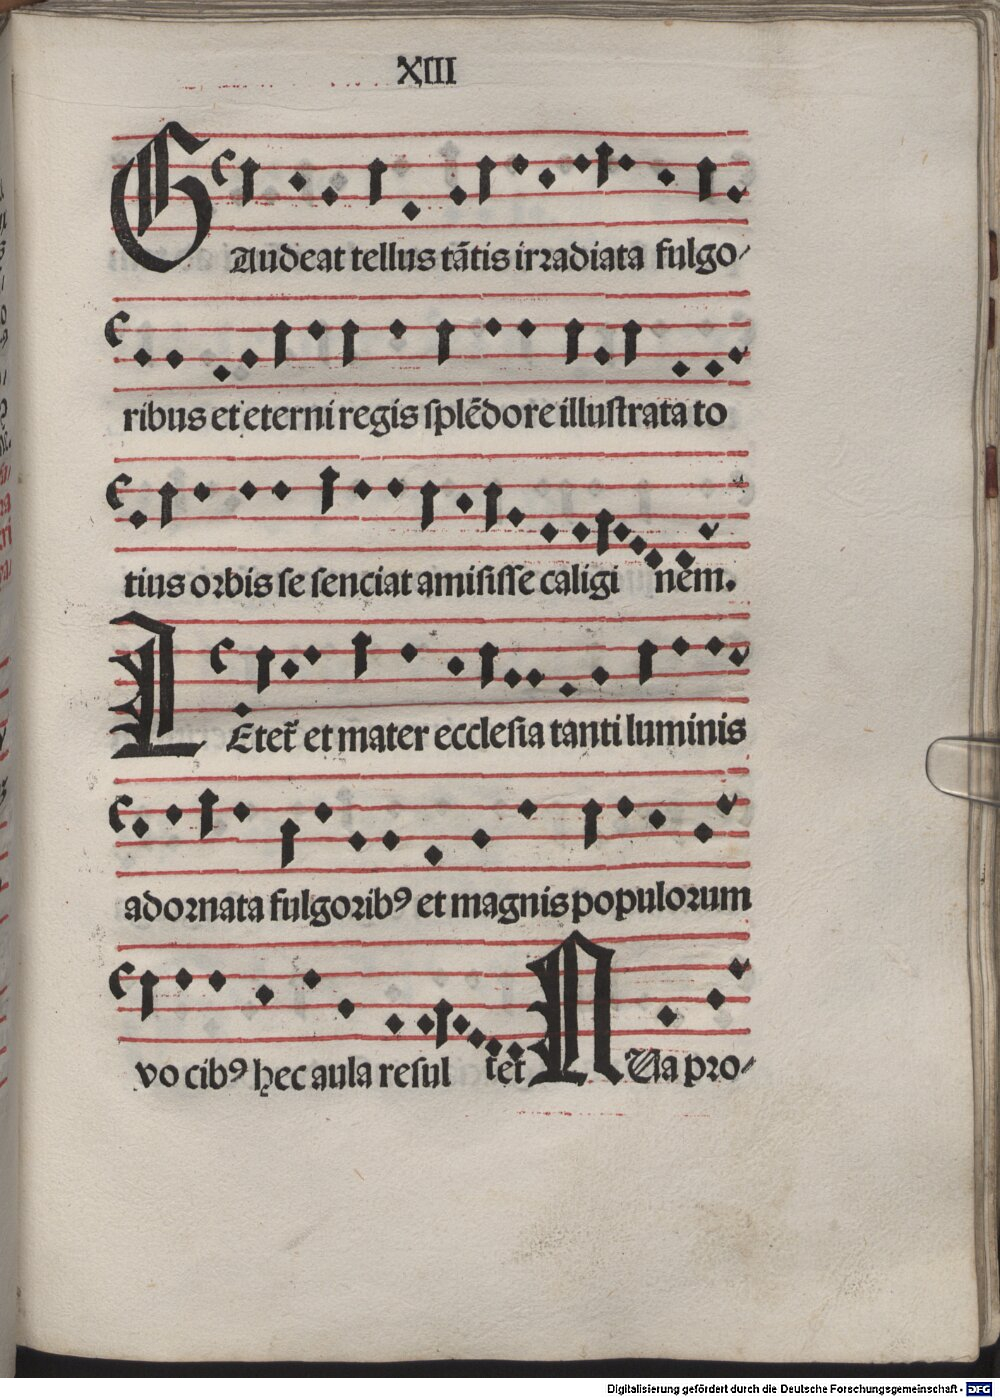 XIII
GAudeat tellus tātis irradiata fulgo-
ribus et eterni regis splēdore illustrata to
tius orbis se senciat amisisse caligi nem.
LEtet̃ et mater ecclesia tanti luminis
adornata fulgoribꝰ et magnis populorum
vocibꝰ hec aula resul tet NUa pro-
Digitalisierung gefördert durch die Deutsche Forschungsgemeinschaft - DFG